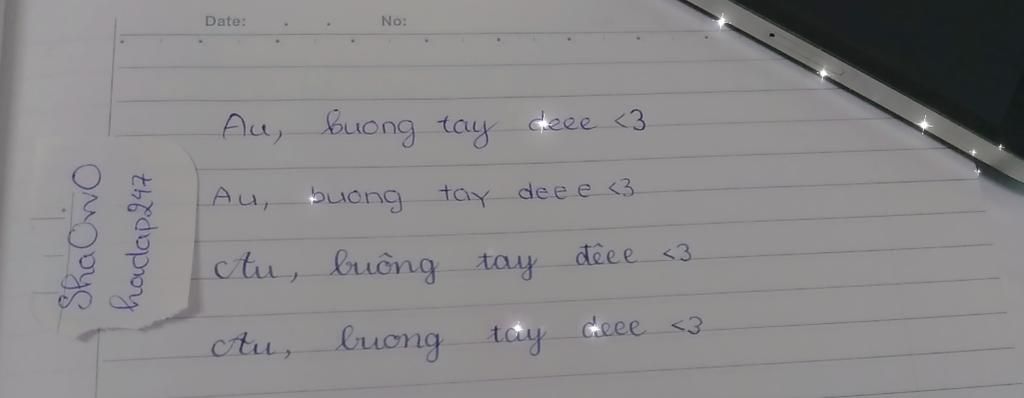 Date: . . No:
Au, buong tay deee <3
Au, buong tay deee <3
Au, buông tay đêee <3
Au, buong tay deee <3
ShaOniO
hadap247